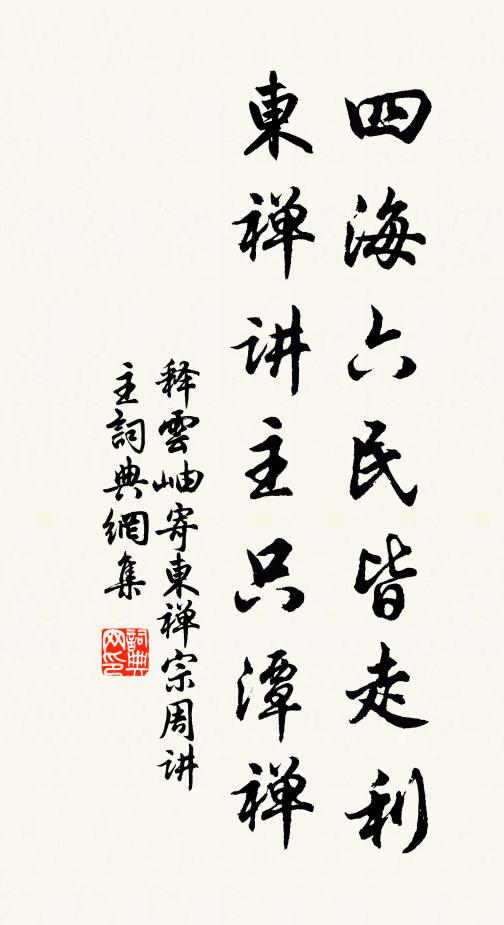 四海六民皆走利
東禅讲主只潭禅
释雲岫寄東禅宗周讲
主詞典網集
詞典網印